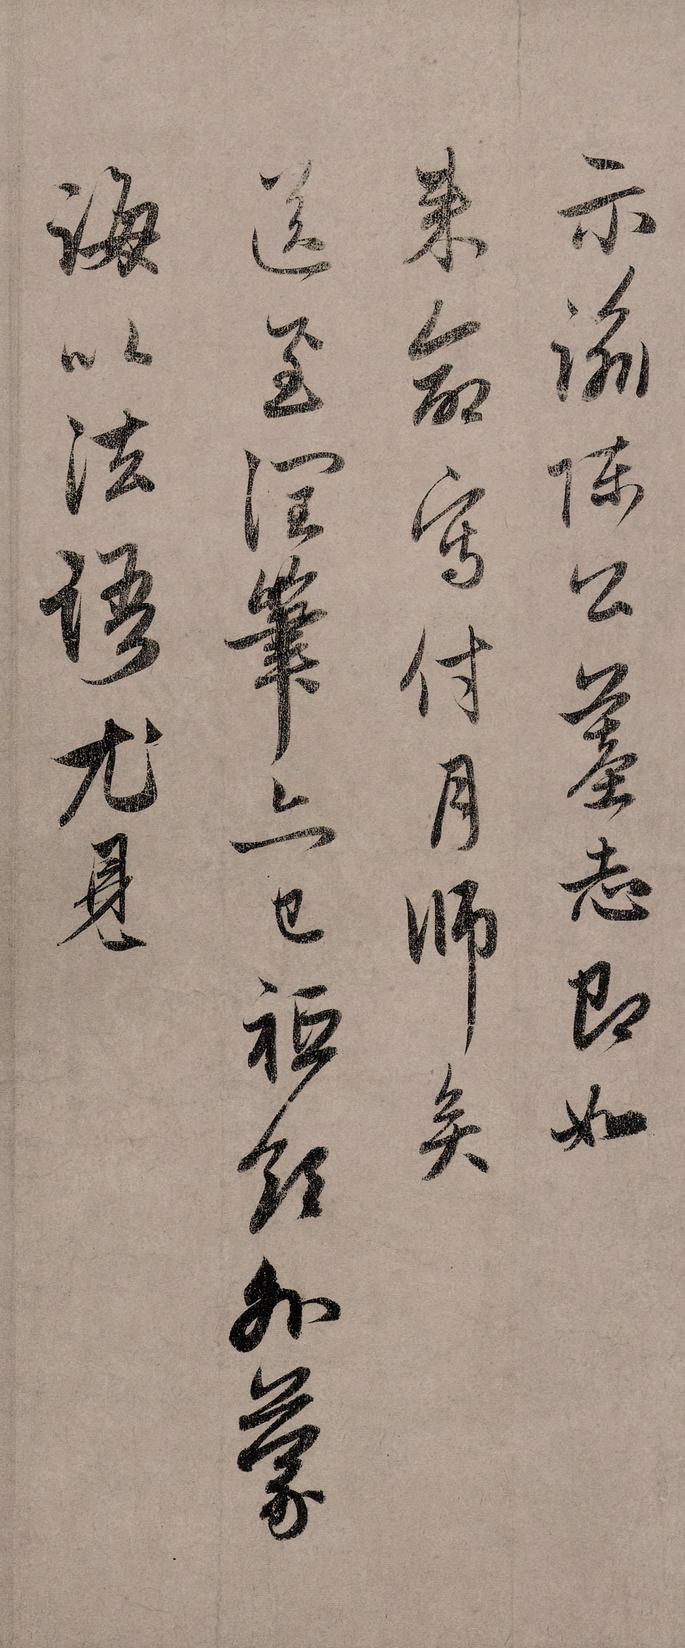 示諭陳公墓志即如
來命寫付月師矣
送至潤筆亦已祗領外蒙
誨以法語尤見